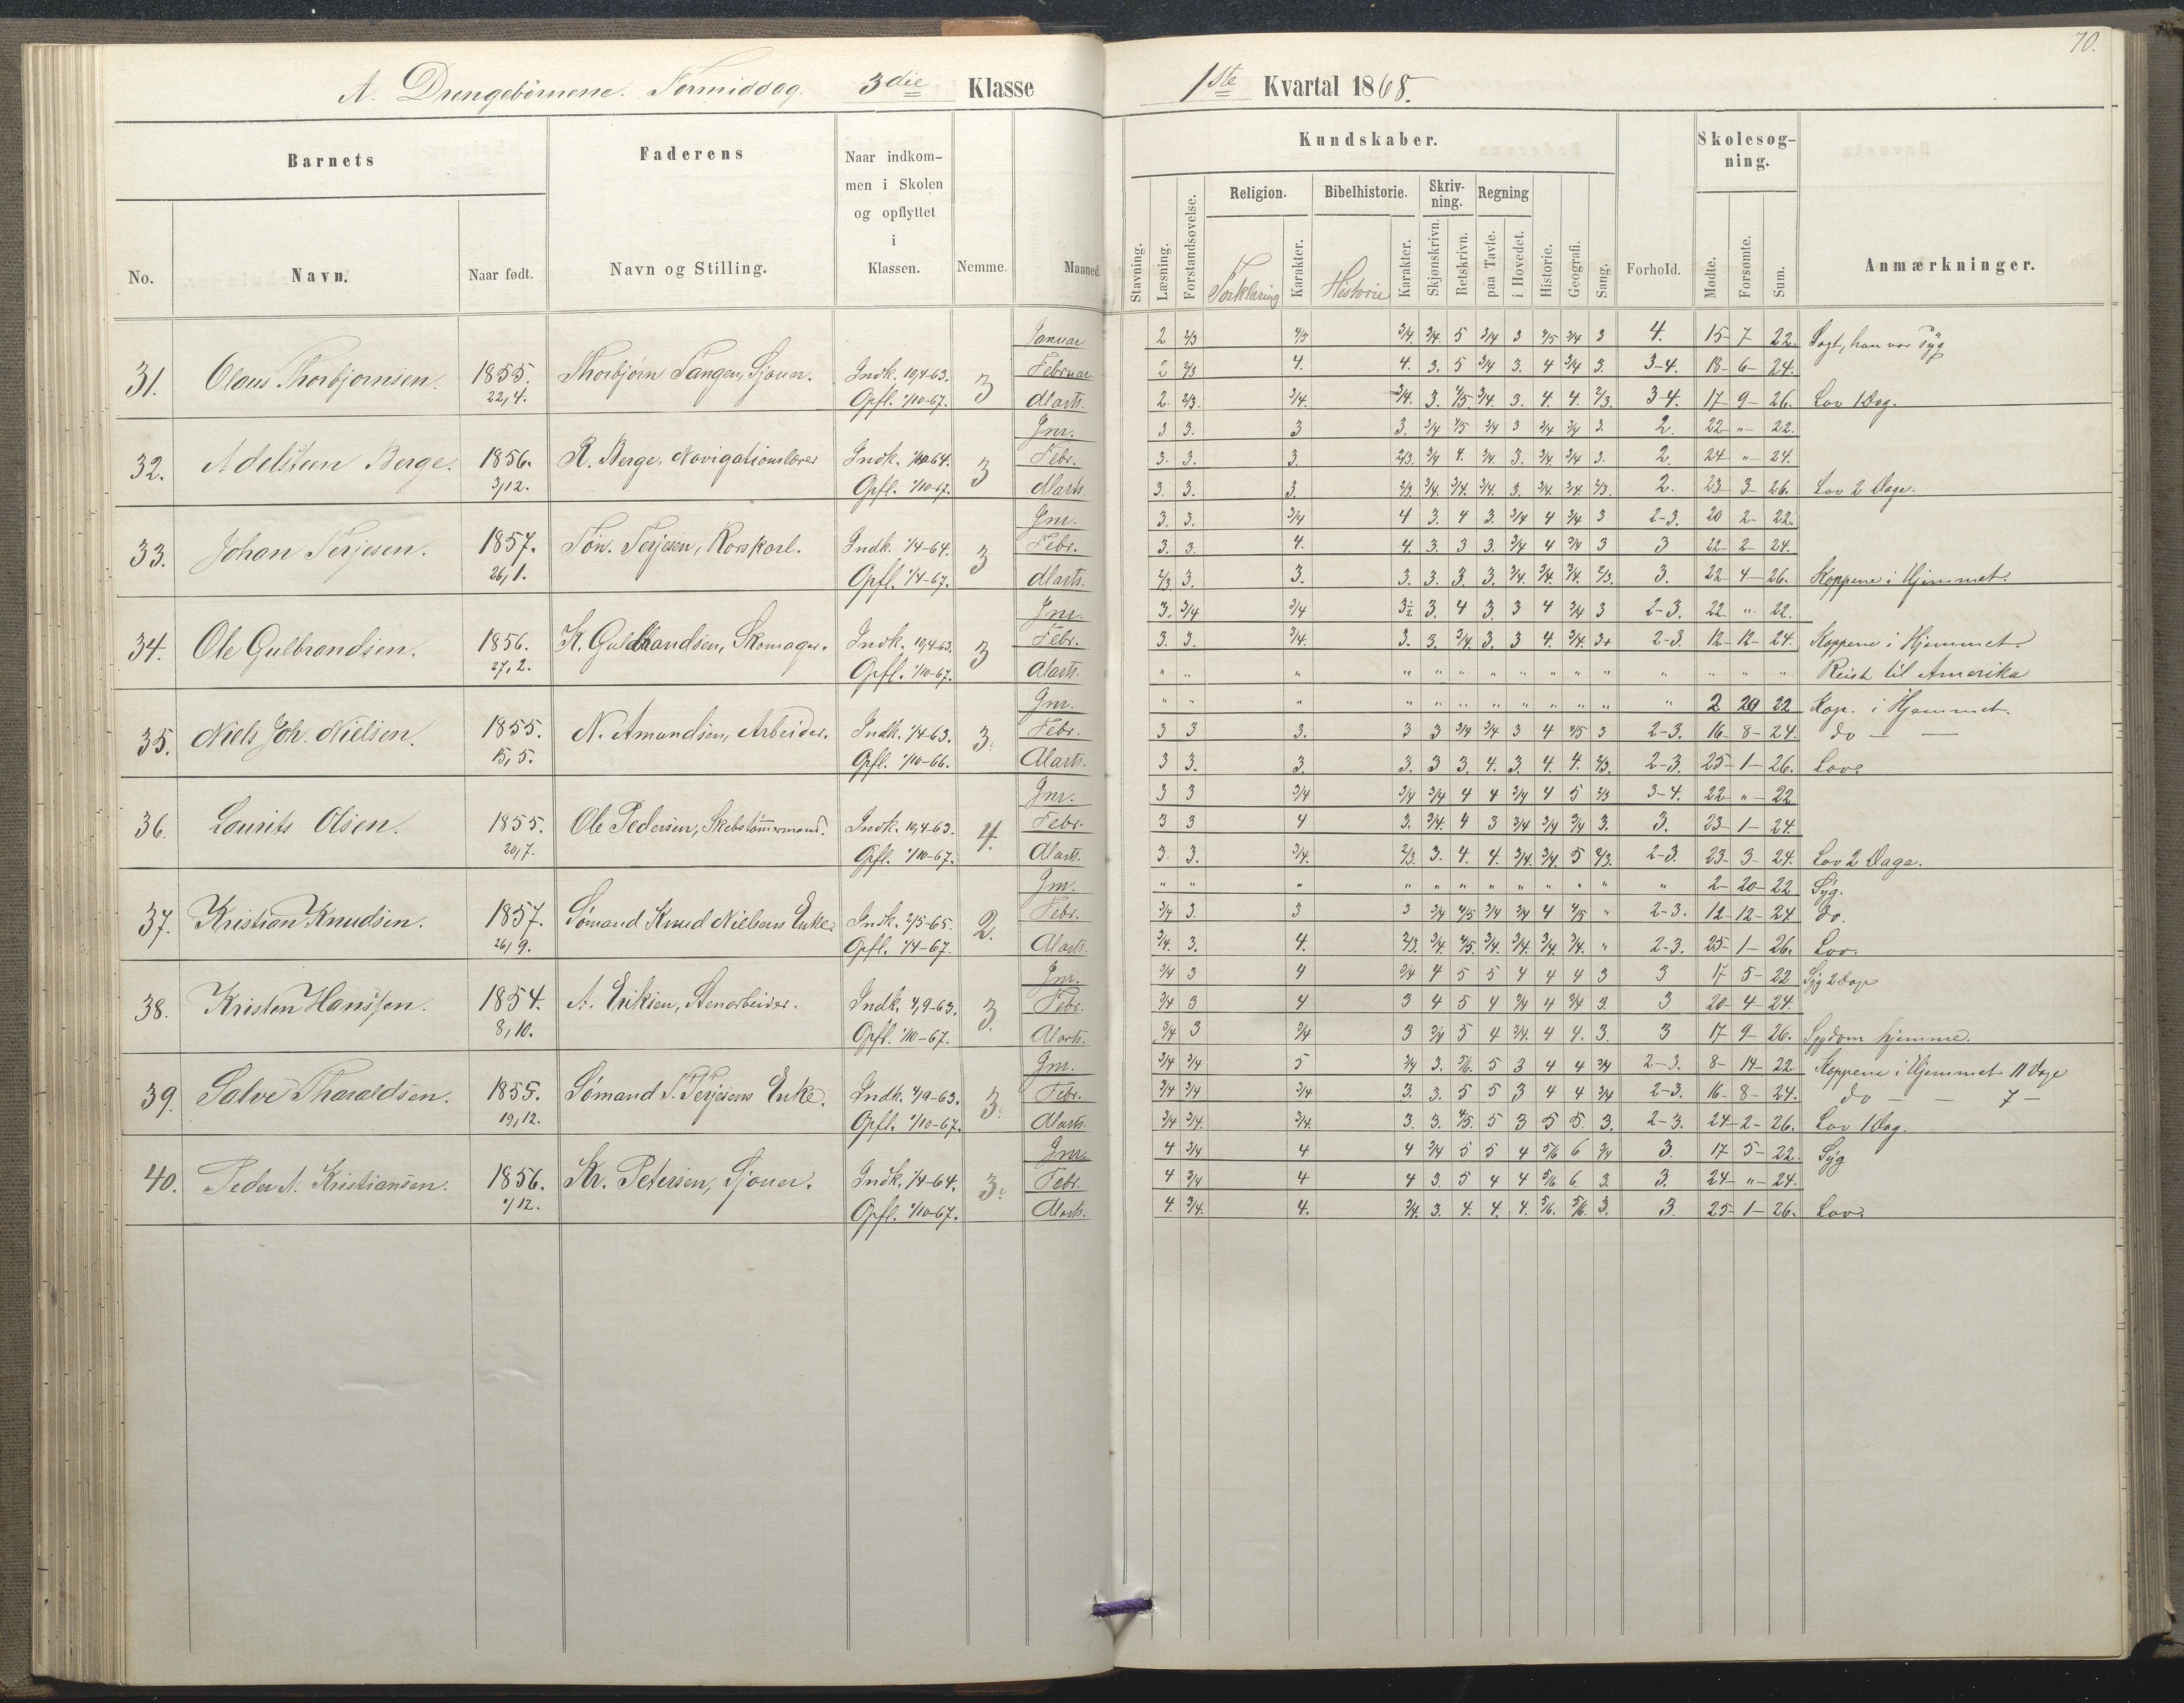 70.
A. Drengebørnene. Formiddag. 3die Klasse
1ste Kvartal 1868.
Barnets
Faderens
Naar indkom-
men i Skolen
og opflyttet
i
Klassen.
No.
Navn.
Naar født.
Navn og Stilling.
Nemme.
Maaned.
Kundskaber.
Skolesøg-
ning.
Stavning.
Læsning.
Forstandsøvelse.
Religion.
Forklaring
Karakter.
Bibelhistorie.
Historie
Karakter.
Skriv-
ning.
Skjønskrivn.
Retskrivn.
Regning
paa Tavle.
i Hovedet.
Historie.
Geografi.
Sang.
Forhold.
Mødte.
Forsømte.
Sum.
Anmærkninger.
Januar 2 2/3 4/5 3/4. 3/4. 5 3/4 3 4/5 3/4 3 4. 15- 7 22. Sagt, han var Syg
31. Olaus Thorbjørnsen. 1855. Thorbjørn Tangen, Sjouer. Indk. 19,4-63. 3 Februar 2 2/3 4. 4. 3. 5 3/4 3. 4 3/4 3. 3-4. 18- 6- 24.
22,4. Opfl. 1/10-67. Marts. 2. 2/3. 3/4. 3/4. 3. 4/5. 3/4. 3. 4. 4. 2/3. 3-4. 17- 9- 26. Lov 1 Dag.
Jnr. 3 3. 3 3. 3/4 4/5 3/4 3 3/4 3/4 3. 2. 22- " - 22.
32. Adelsteen Berge. 1856. R. Berge, Navigationslærer Indk. 64. 3 Febr. 3. 3. 3. 2/3. 3/4 4. 3/4. 3. 3/4. 3/4 3. 2. 24 " - 24.
3/12. Opfl. 1/10-67. Marts 3. 3. 3. 2/3. 3/4. 3/4. 3/4. 3. 3/4. 3/4. 2/3. 2. 23- 3- 26. Lov 2 Dage.
Jnr. 3. 3. 3/4 4 3. 4 3. 3/4 4 3/4 3 2-3. 20 2- 22.
33. Johan Terjesen. 1857. Tøn. Terjesen, Korskarl. Indk. 1/4-64. 3 Febr. 3. 3. 4. 4. 3. 3 3. 3/4 4 3/4 3 3 22- 2- 24.
26,1. Opfl. 1/4-67. Marts. 2/3 3. 3. 3. 3. 3. 3. 3/4. 3/4. 3/4. 2/3. 3. 22- 4- 26. Koppene i Hjemmet.
Jnr. 3. 3/4 3/4 3½ 3. 4 3 3 4 3/4 3 2-3. 22 " - 22.
34. Ole Gulbrandsen. 1856. K. Guldbrandsen, Skomager. Indk. 19,4-63. 3 Febr. 3. 3. 3/4. 3. 3. 3/4. 3. 3 4. 3/4. 3+ 2-3 12- 12- 24. Koppene i Hjemmet.
27,2. Opfl. 1/10-67. Marts. " " " " " " " " " " " " " " " Reist til Amerika
Jnr. " " " " " " " " " " " " 2 20 22 Kop. i Hjemmet.
35. Niels Joh. Nielsen. 1855. N. Amundsen, Arbeider. Indk. 1/4-63. 3. Febr. 3 3 3. 3 3 3/4 3/4 3 4 4/5 3 2-3. 16- 8- 24. do — —
15,5. Opfl. 1/10-66. Marts. 3 3. 3. 3. 3 3. 4. 3. 4. 4. 2/3. 2-3. 25- 1- 26. Lov.
Jnr. 3 3 3/4 3/4 3/4 4 4 3/4 4 5 2/3 3-4. 22- " - 22
36. Lourits Olsen. 1855. Ole Pedersen, Skebstømmermand. Indk. 19,4-63. 4. Febr. 3 3 4 3. 3/4. 4 3 3/4 3/4 3/4 3. 3. 23- 1- 24.
20,7. Opfl. 1/10-67. Marts. 3. 3. 3/4. 2/3. 3. 4. 4. 3/4. 3/4. 5 2/3. 2-3. 23- 3- 24. Lov 2 Dage.
Jnr. " " " " " " " " " " " " 2- 20- 22 Syg.
37. Kristian Knudsen. 1857. Sømand Knud Nielsens Enke. Indk. 2/5-65. 2. Febr. 3/4 3. 3 3 3/4 4/5 3/4 3/4 4 4/5 " 2-3. 12- 12- 24 do.
26,9. Opfl. 1/4-67. Marts. 3/4. 3. 4. 2/3. 3/4 4/5. 3/4. 3/4. 3/4. 3/4. " 2-3. 25- 1- 26. Lov.
Jnr. 3/4 3 4 3/4 4 5 5 4 4 4 3 3 17 5- 22 Syg 2 Dage
38. Kristen Hanssen. 1854. A. Eriksen, Stenarbeider. Indk. 4,9-63. 3. Febr. 3/4 3 4 3 4 5 4 3/4 4 3/4 3. 3 20- 4- 24.
8,10. Opfl. 1/10-67. Marts. 3/4 3 3/4 3 3/4 5 4 3/4. 4 4. 3. 3 17 9- 26. Sygdom hjemme.
Jnr. 3/4 3/4 5 3/4 3. 5/6. 5 3 4 4 3/4 2-3. 8- 14- 22 Koppene i Hjemmet 11 Dage
39. Salve Tharaldsen. 1855. Sømand T. Terjesens Enke. Indk. 4/9-63. 3. Febr. 3/4 3/4 3/4 3. 3. 5 5 3 4 4 3/4 2-3. 16- 8- 24. do — — 7 —
19,12. Opfl. 1/10-67. Marts. 3/4 3/4. 3/4. 3. 3. 4/5. 5 3 5 5. 3. 2-3. 24- 2- 26. Lov 1 Dag.
Jnr. 4 3/4 4 4 3/4 5 5 4 5/6 6 3/4 3. 17 5- 22. Syg
40. Peder N. Kristiansen. 1856. Kr. Petersen, Sjouer. Indk. 1/4-64. 3. Febr. 4 3/4 4 4 3 5 4 4 5/6 6 3. 3. 24- " - 24.
/12. Opfl. 1/10-67. Marts. 4. 3/4. 4. 3/4. 3. 4. 4. 4. 5/6. 5/6. 3. 3. 25- 1- 26. Lov.